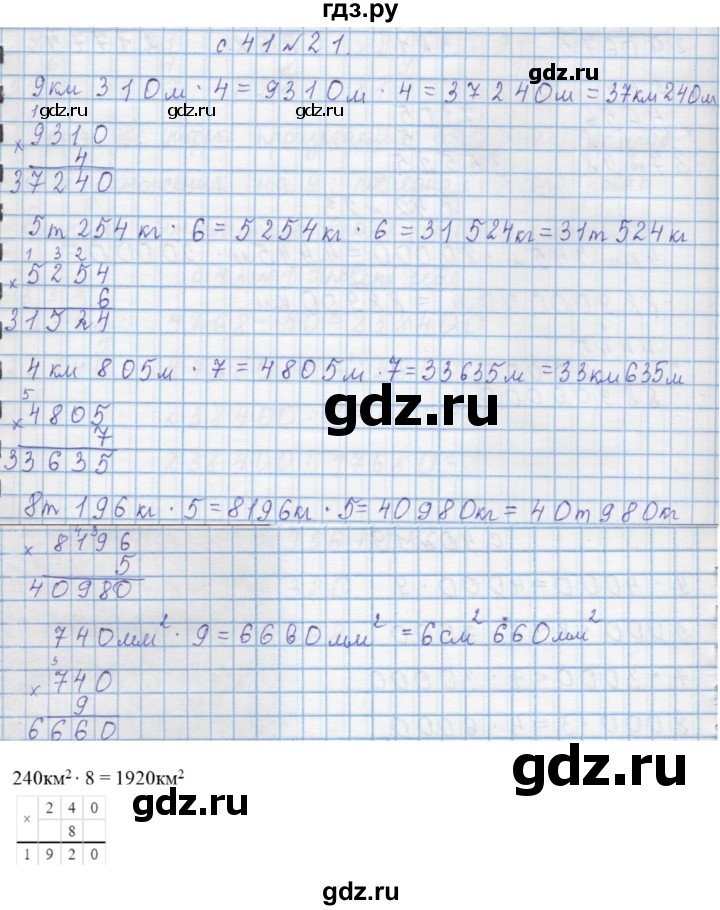 гдз.ру
с 41 № 21.
gdz.ru
9км 310м · 4 = 9310м · 4 = 37240м = 37км 240м
gdz.ru gdz.ru gdz.ru
1
× 9310
4
37240
5т 254кг · 6 = 5254кг · 6 = 31524кг = 31т 524кг
1 3 2
× 5254
6
31524
4км 805м · 7 = 4805м · 7 = 33635м = 33км 635м
gdz.ru
5
× 4805
7
33635
8т 196кг · 5 = 8196кг · 5 = 40980кг = 40т 980кг
4 3
× 8196
5
40980
740мм² · 9 = 6660мм² = 6см² 660мм²
3
× 740
9
6660
gdz.ru
240км² · 8 = 1920км²
gdz.ru gdz.ru
× 2 4 0
8
1 9 2 0
gdz.ru